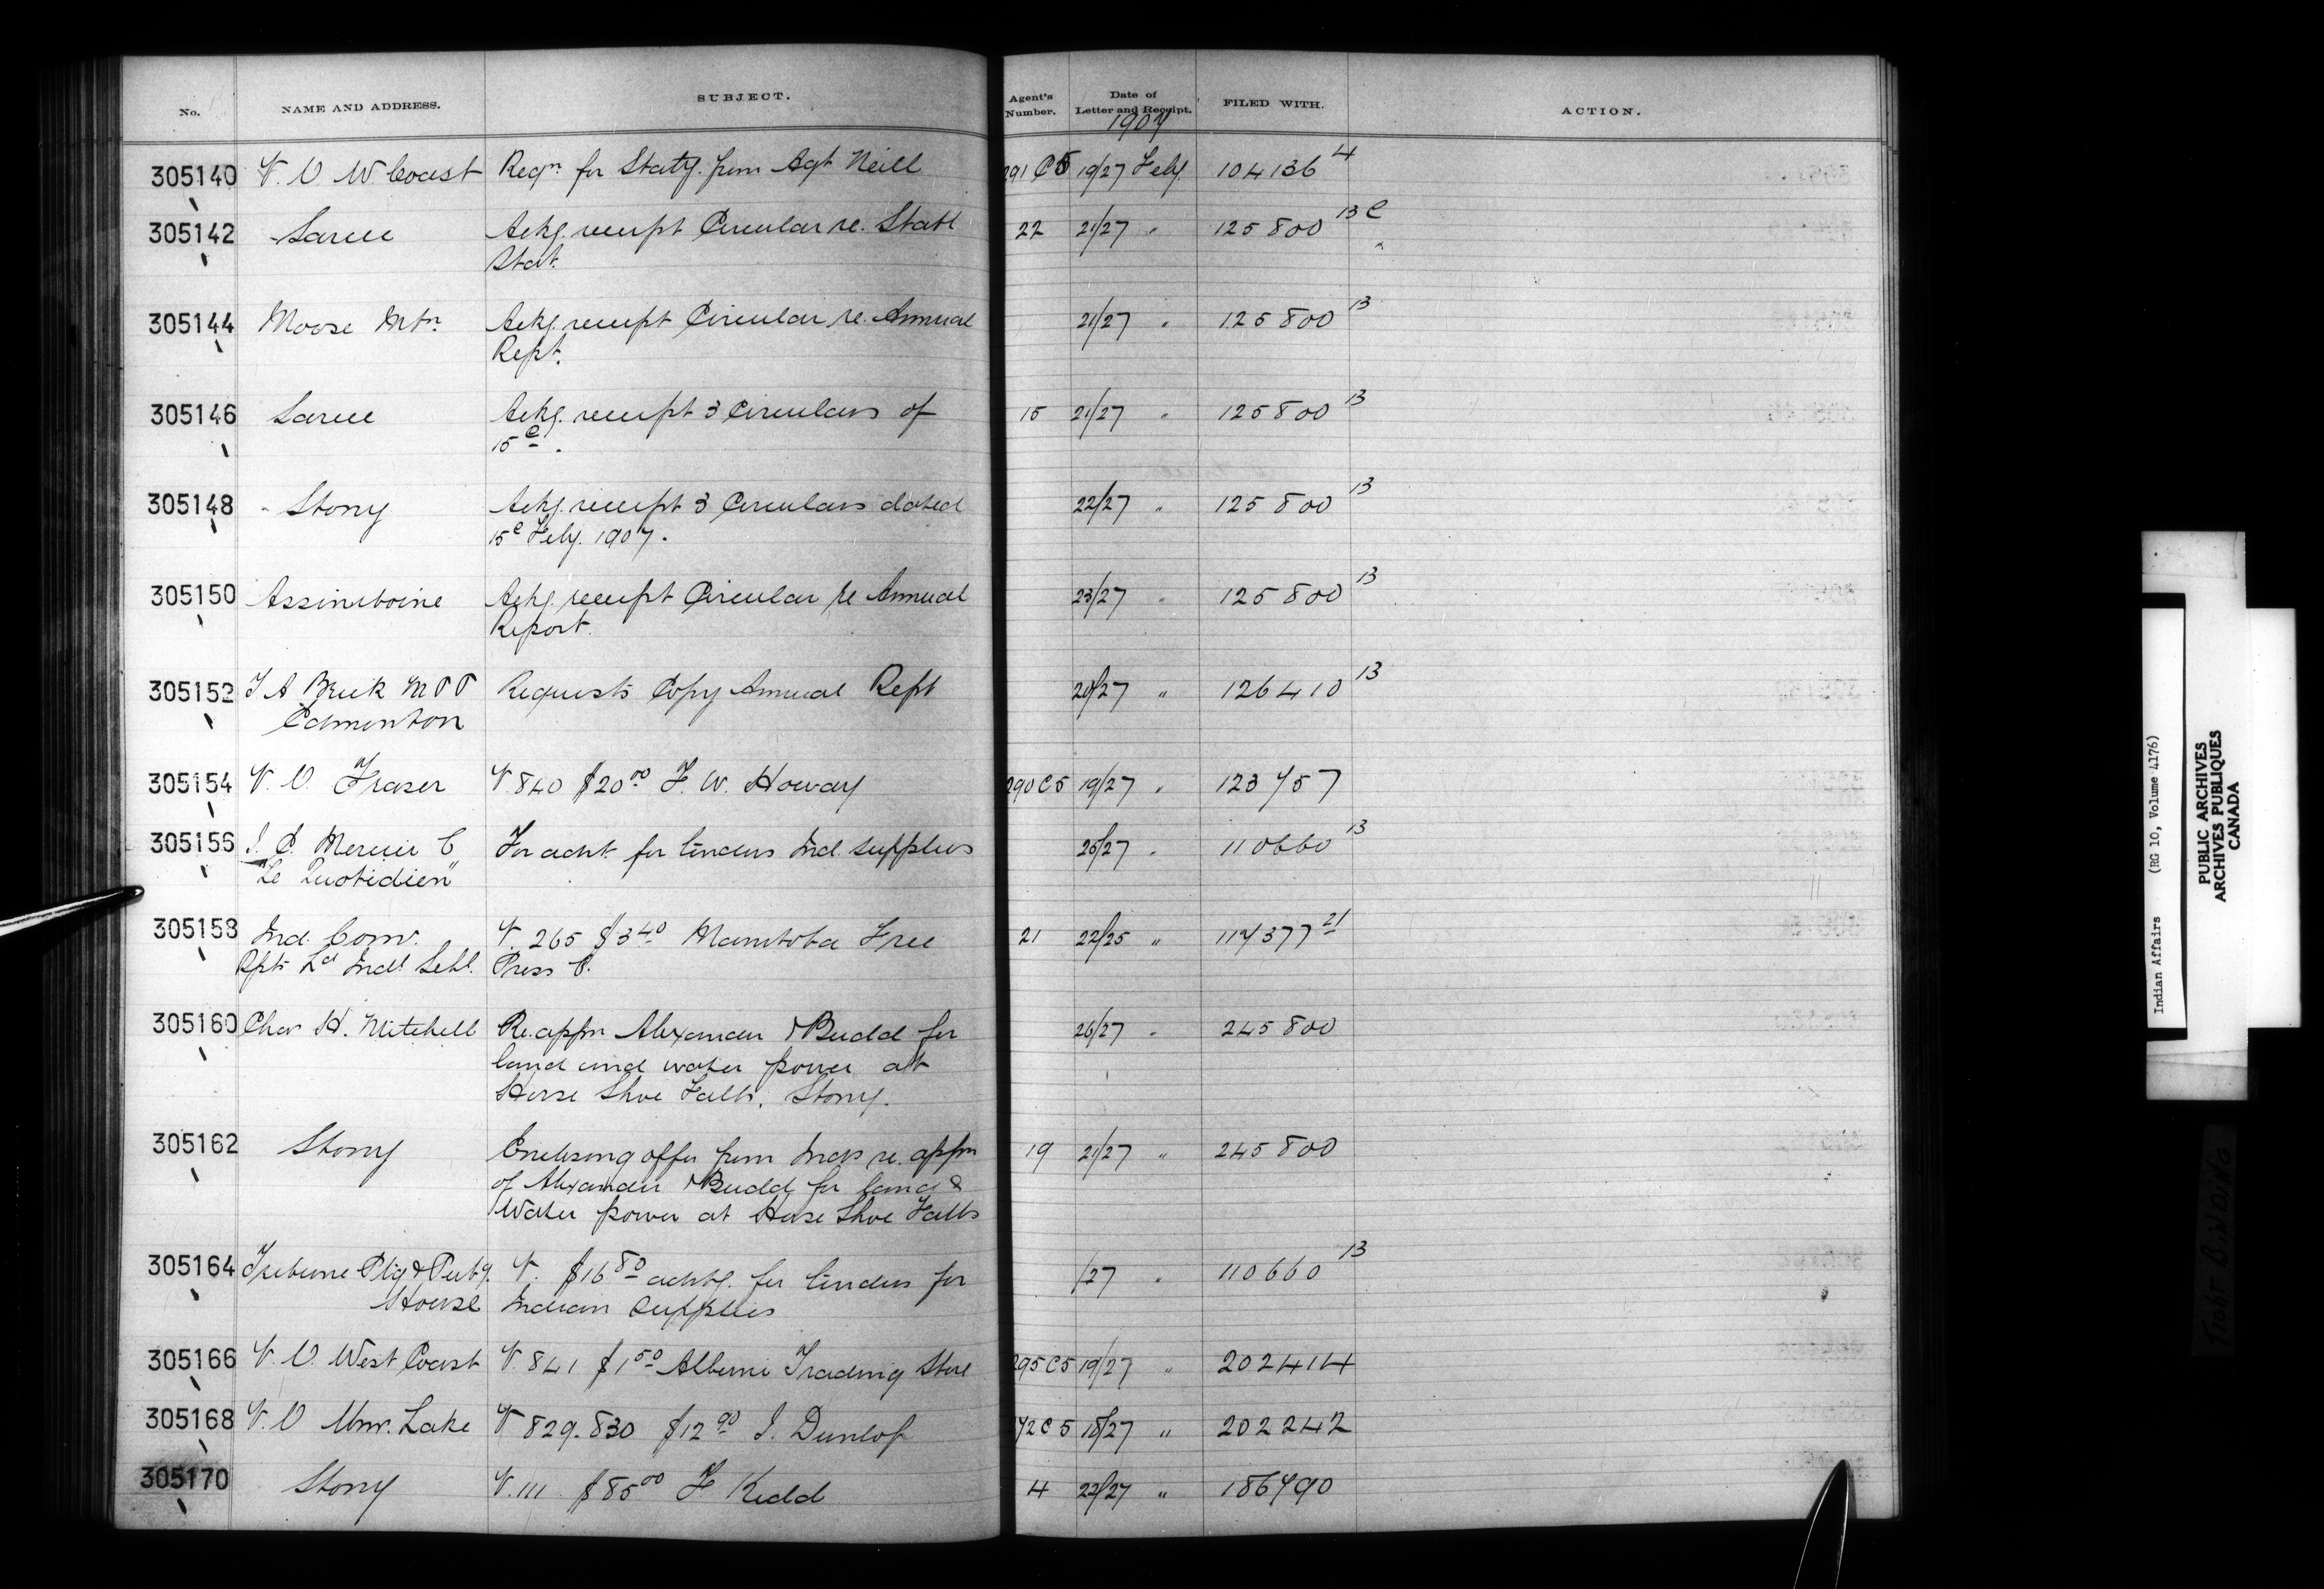 No. NAME AND ADDRESS. SUBJECT. Agent's Number. Date of Letter and Receipt. FILED WITH. ACTION.
1907
305140 V. O. W Coast Reqn for Staty. from Agt Neill 291 C5 19/27 Feby. 104136 4
305142 Sarcee Ackg. receipt Circular re. Statl 22 21/27 " 125800 13 C
Stat.
305144 Moose Mtn. Ackg. receipt Circular re. Annual 21/27 " 125800 13
Rept.
305146 Sarcee Ackg. receipt 3 Circulars of 15 21/27 " 125800 13
15e.
305148 Stony Ackg. receipt 3 Circulars dated 22/27 " 125800 13
15e Feby. 1907.
305150 Assiniboine Ackg. receipt Circular re Annual 23/27 " 125800 13
Report.
305152 T A Brick M P P Requests Copy Annual Rept 20/27 " 126410 13
Edmonton
305154 V. O. Fraser V. 840 $20 00 F. W. Howay 290 C5 19/27 " 123757
305156 Mercier For advt. for tenders Ind. supplies 25/27 " 110660 13
"Le Quotidien"
305158 Ind. Com. V. 265 $3 40 Manitoba Free 21 22/25 " 117377 21
Indl Schl. Press C.
305160 Chas H. Mitchell Re. appn Alexander & Budd for 26/27 " 245800
land and water power at
Horse Shoe Falls. Stony.
305162 Stony Enclosing offer from Inds re. appn 19 21/27 " 245800
of Alexander & Budd for land &
Water power at Horse Shoe Falls
305164 Tribune Ptg & Pubg. V. $16 80 advtg. for tenders for /27 " 110660 13
House Indian Supplies
305166 V. O. West Coast V. 841 $1 50 Alberni Trading Store 295 C5 19/27 " 202414
305168 V. O Wms. Lake V 829-830 $12 90 J. Dunlop 72 C 5 18/27 " 202242
305170 Stony V. 111 $85 00 F Kidd 4 22/27 " 186790
Indian Affairs (RG 10, Volume 4176)
PUBLIC ARCHIVES
ARCHIVES PUBLIQUES
CANADA
TIGHT BINDING